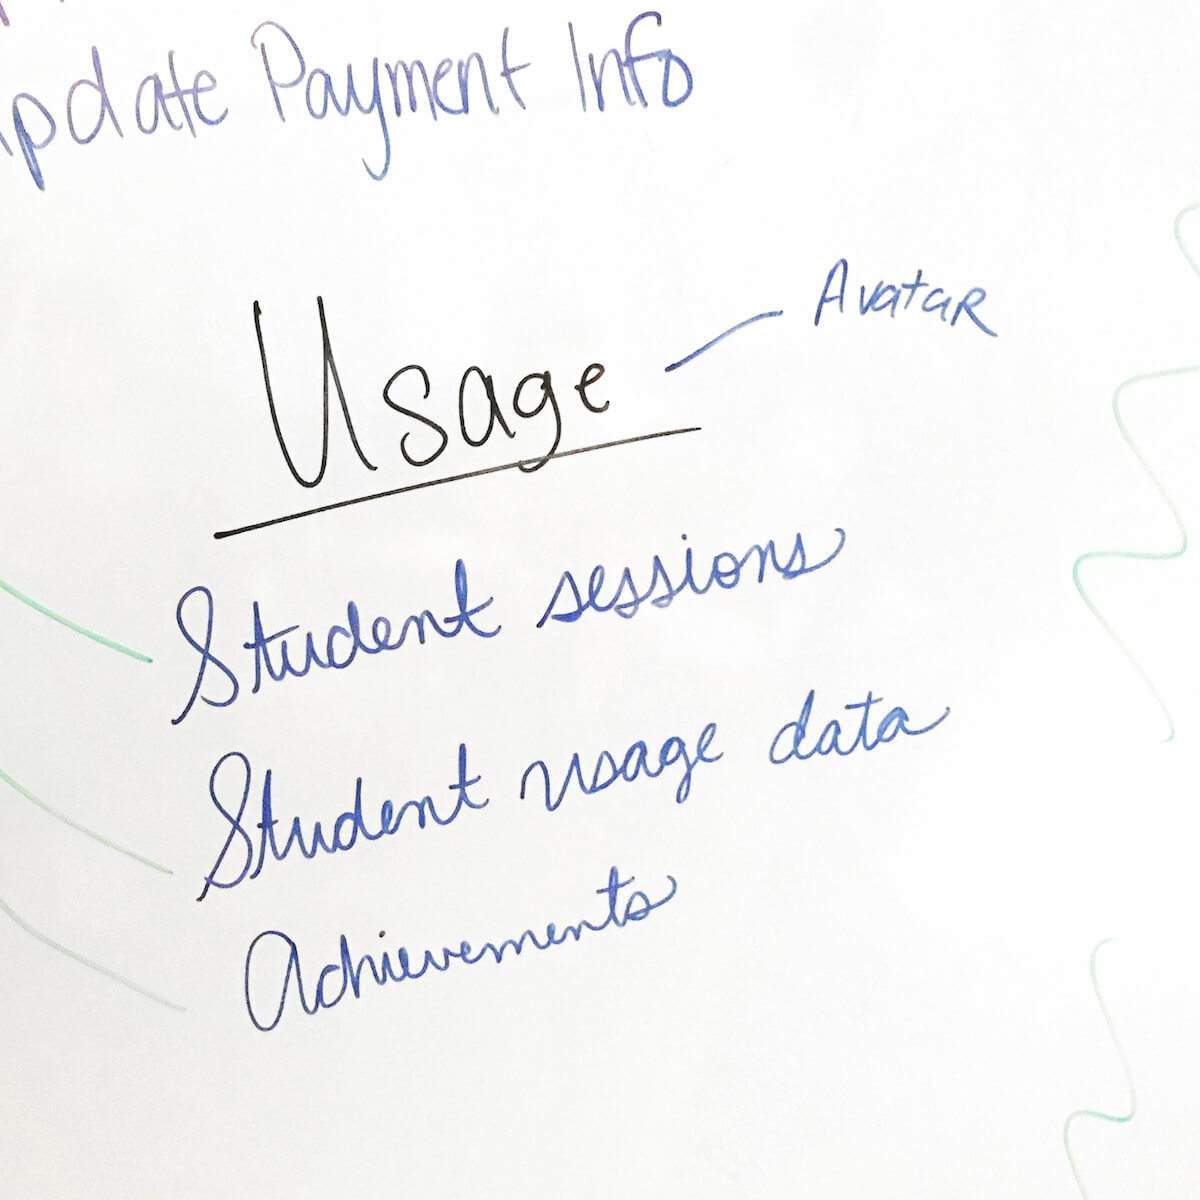 Update Payment Info
Avatar
Usage
Student sessions
Student usage data
Achievements